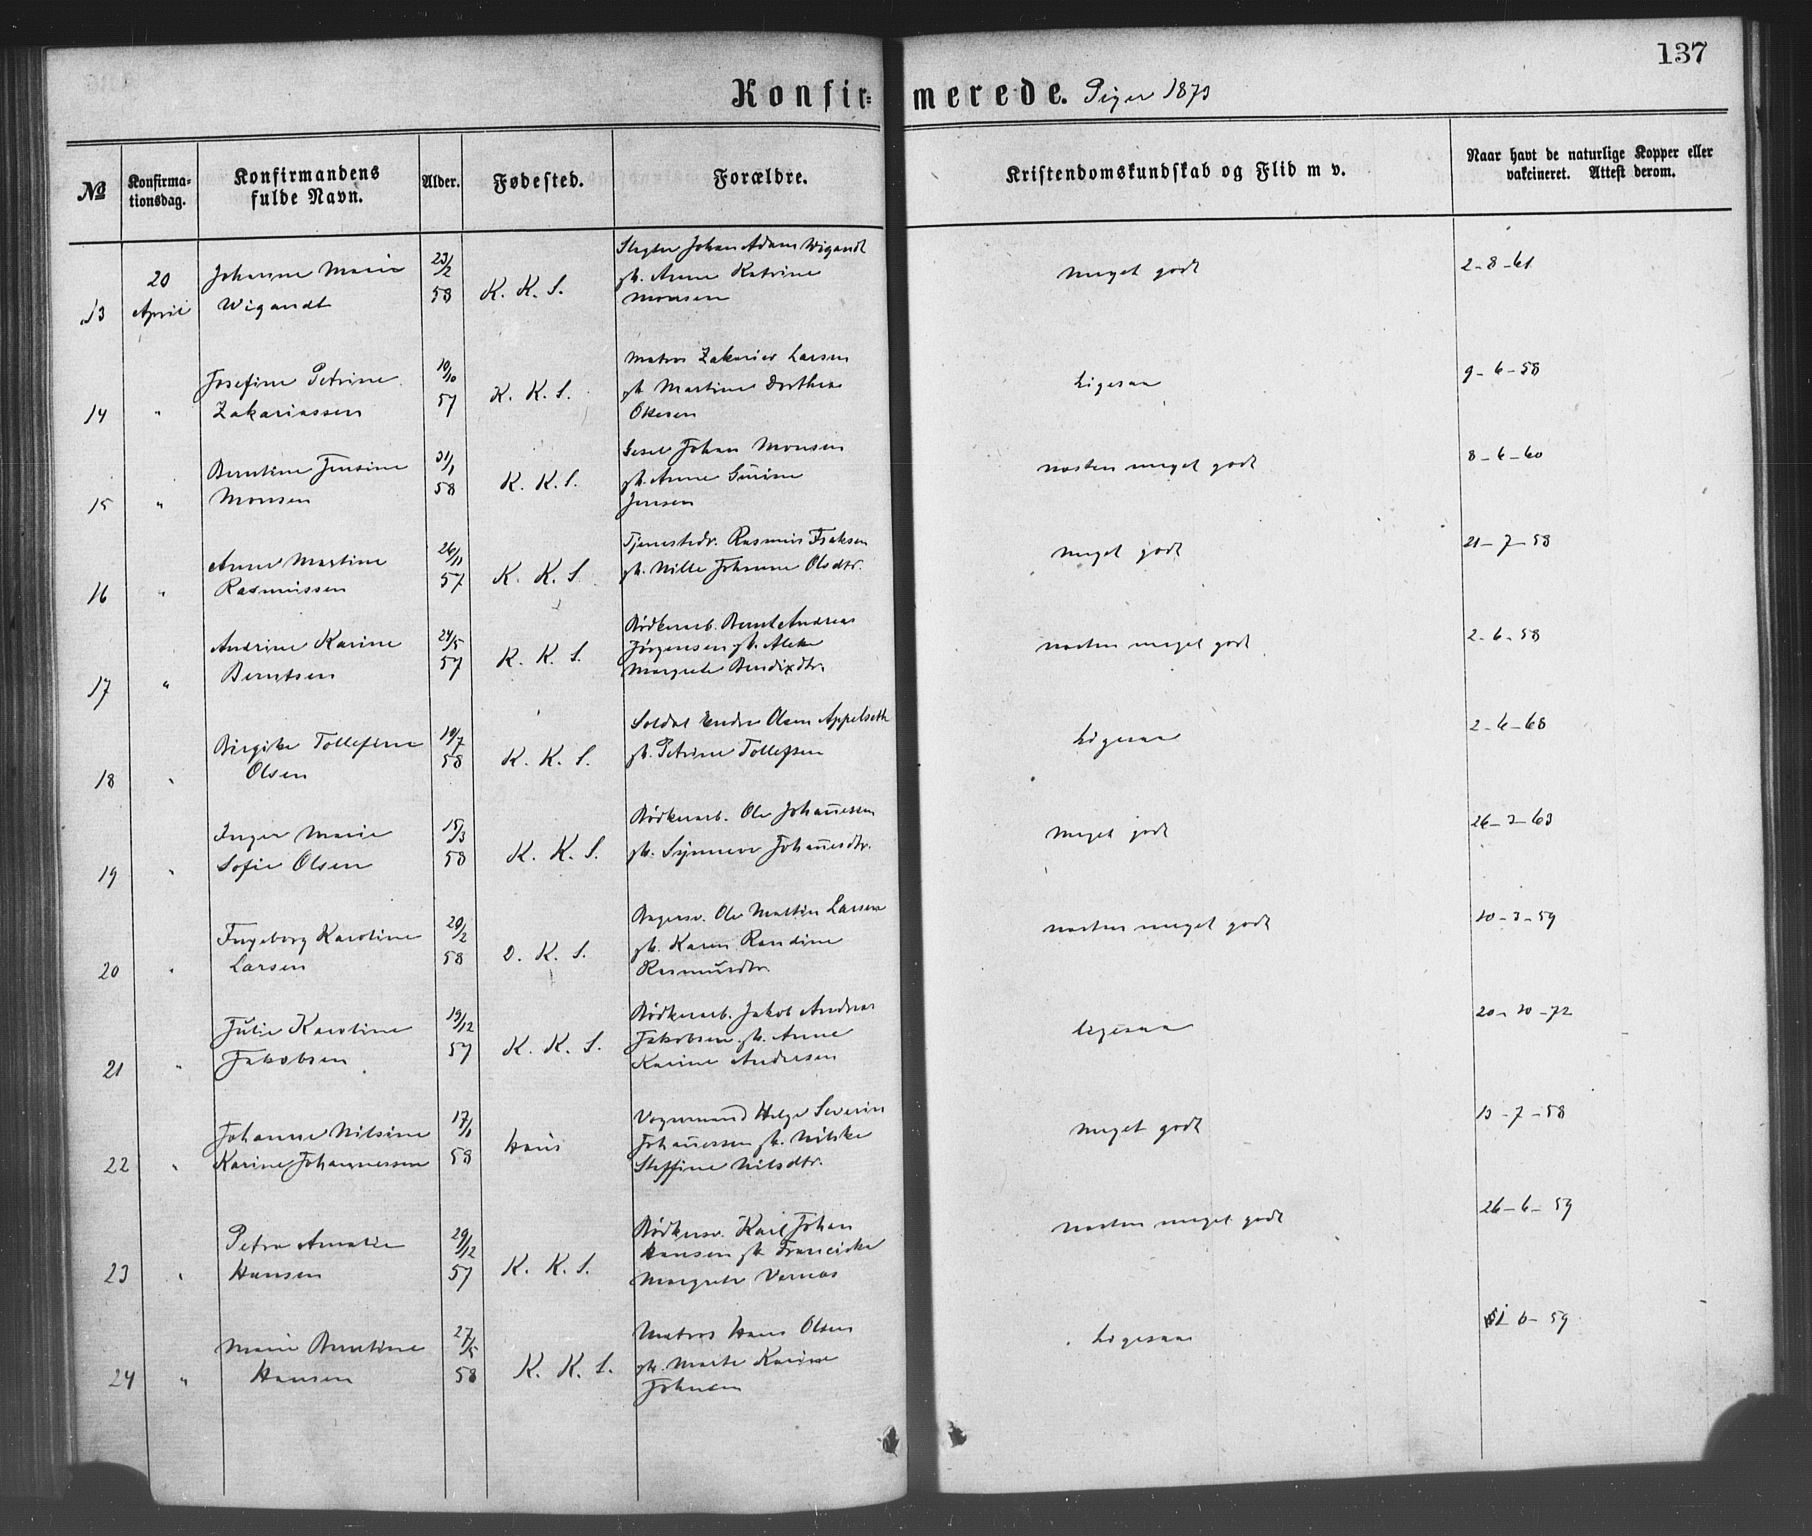 137
Konfirmerede. Piger 1873
№
Konfirmationsdag.
Konfirmandens fulde Navn.
Alder.
Fødested.
Forældre.
Kristendomskundskab og Flid m v.
Naar havt de naturlige Kopper eller vakcineret. Attest derom.
13 20 April Johanne Marie Wigandt 23/2 58 K. K. S. Slagter Johan Adam Wigandt gk. Anne Katrine Monsen meget godt 2-8-61
14 " Josefine Petrine Zakariassen 10/10 57 K. K. S. Matros Zakarias Larsen gk Martine Dorthea Olsen Ligesaa 9-6-58
15 " Berntine Jensine Monsen 31/1 58 K. K. S. Johan Monsen gk. Anne Jensen næsten meget godt 8-6-60
16 " Anne Martine Rasmussen 26/11 57 K. K. S. Tjenestedr. Rasmus Isaksen gk. Nille Johanne Olsdtr. meget godt 21-7-58
17 " Andrine Karine Berntsen 24/5 57 K. K. S. Bødkerarb. Bernt Andreas Jørgensen gk. Aleke Margrete Bendixdtr. næsten meget godt 2-6-58
18 " Birgitte Tollefine Olsen 19/7 58 K. K. S. Soldat Endre Olsen Appelseth gk. Petrine Tollefsen Ligesaa 2-6-68
19 " Inger Marie Sofie Olsen 15/3 58 K. K. S. Bødkerarb. Ole Johannessen gk. Synneve Johannesdtr. Meget godt 26-3-63
20 " Ingeborg Karoline Larsen 20/2 58 D. K. S. Bagersv. Ole Martin Larsen gk. Karen Randine Rasmusdtr. næsten meget godt 10-3-59
21 " Julie Karoline Jakobsen 19/12 57 K. K. S. Bødkerarb. Jakob Andreas Jakobsen gk. Anne Karine Andersen ligesaa 20-10-72
22 " Johanne Nilsine Karine Johannessen 17/1 58 Haus Vognmand Helge Severin Johannessen gk. Nilske Steffine Nilsdtr. Meget godt 13-7-58
23 " Petra Amalie Hansen 29/12 57 K. K. S. Bødkersv. Karl Johan Hansen gk Franciske Margrete Vernas Næsten meget godt 26-6-59
24 " Marie Berntine Hansen 27/5 58 K. K. S. Matros Hans Olsen gk. Marte Karine Johnsen Ligesaa 6-59